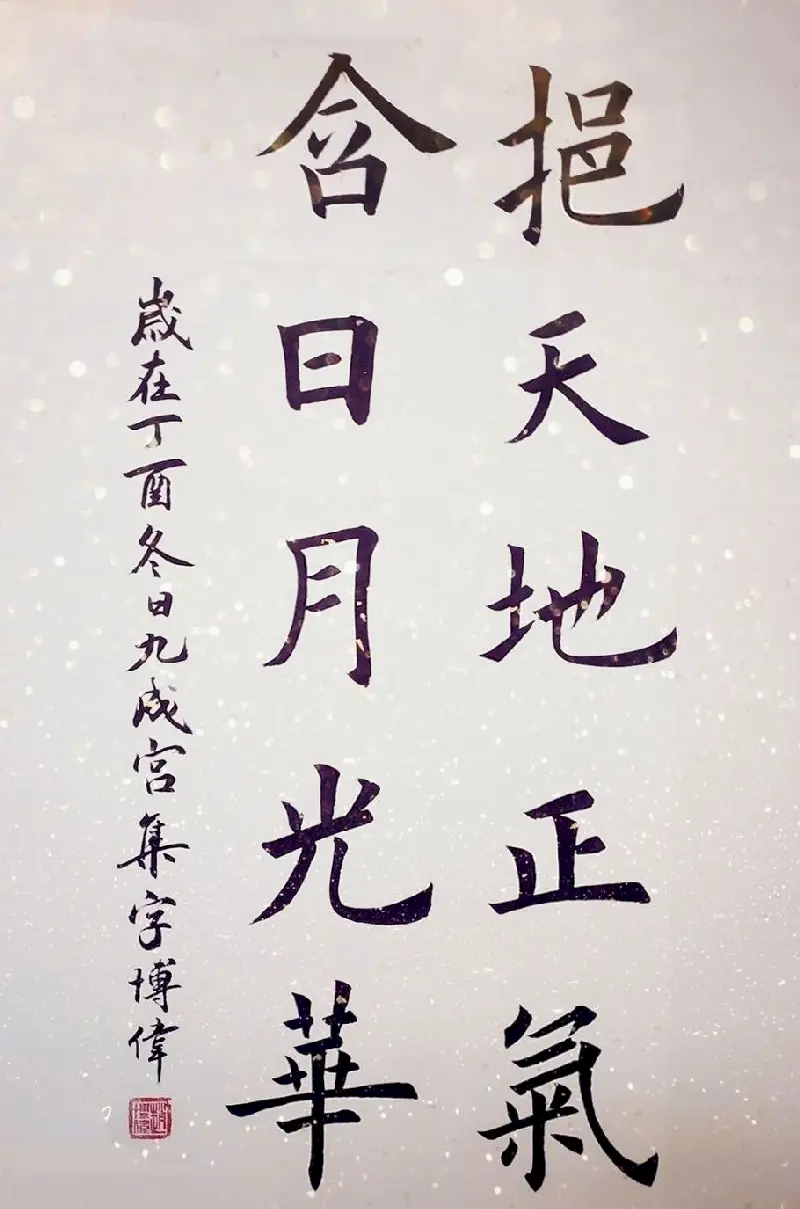 挹天地正氣
含日月光華
歲在丁酉冬日九成宮集字博偉